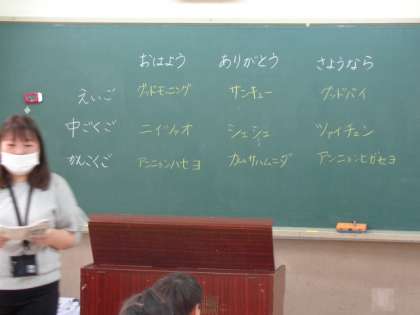 おはよう ありがとう さようなら
えいご グッドモーニング サンキュー グッドバイ
中ごくご ニイツァオ シェシェ ツァイチェン
かんこくご アンニョンハセヨ カムサハムニダ アンニョンヒガセヨ